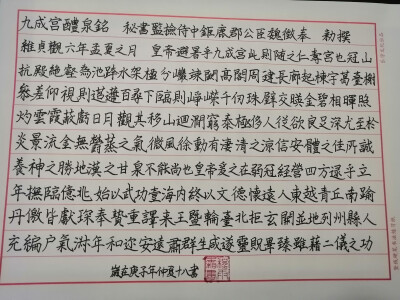 九成宮醴泉銘 秘書監撿侍中鉅鹿郡公臣魏徵奉 勅撰
維貞觀六年孟夏之月 皇帝避暑乎九成宮此則随之仁壽宮也冠山
抗殿絕壑為池跨水架楹分巖竦闕高閣周建長廊四起棟宇膠葛臺榭
參差仰視則迢遰百尋下臨則崢嶸千仞珠璧交暎金碧相暉照
灼雲霞蔽虧日月觀其移山迴澗窮泰極侈以人從欲良足深尤至於
炎景流金無欝蒸之氣微風徐動有淒清之涼信安體之佳所誠
養神之勝地漢之甘泉不能尚也皇帝爰在弱冠經營四方逮乎立
年撫臨億兆始以武功壹海內終以文德懷遠人東越青丘南踰
丹徼皆獻琛奉贄重譯来王西暨輪臺北拒玄闕並地列州縣人
充編戶氣淑年和迩安遠肅群生咸遂靈貺畢臻雖藉二儀之功
歲在庚子年仲夏十八書